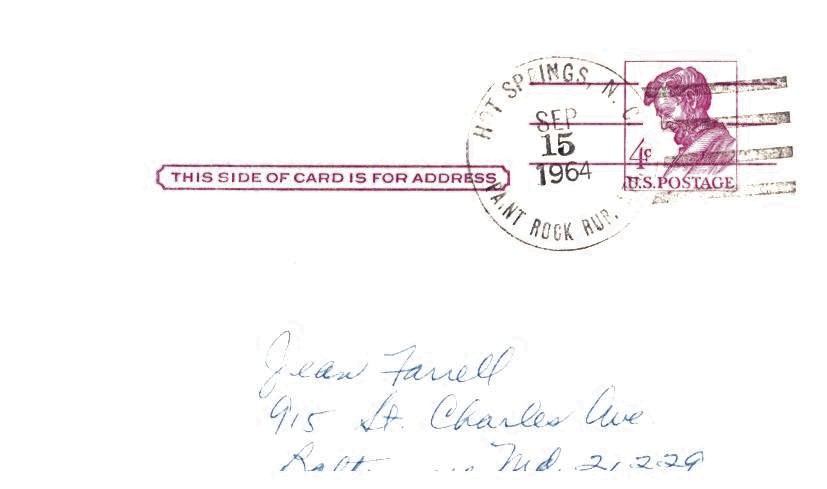 HOT SPRINGS, N. C.
SEP
15
1964
PAINT ROCK RUR.
4c
U.S. POSTAGE
THIS SIDE OF CARD IS FOR ADDRESS
Jean Farrell
915 St. Charles Ave
Md. 21229